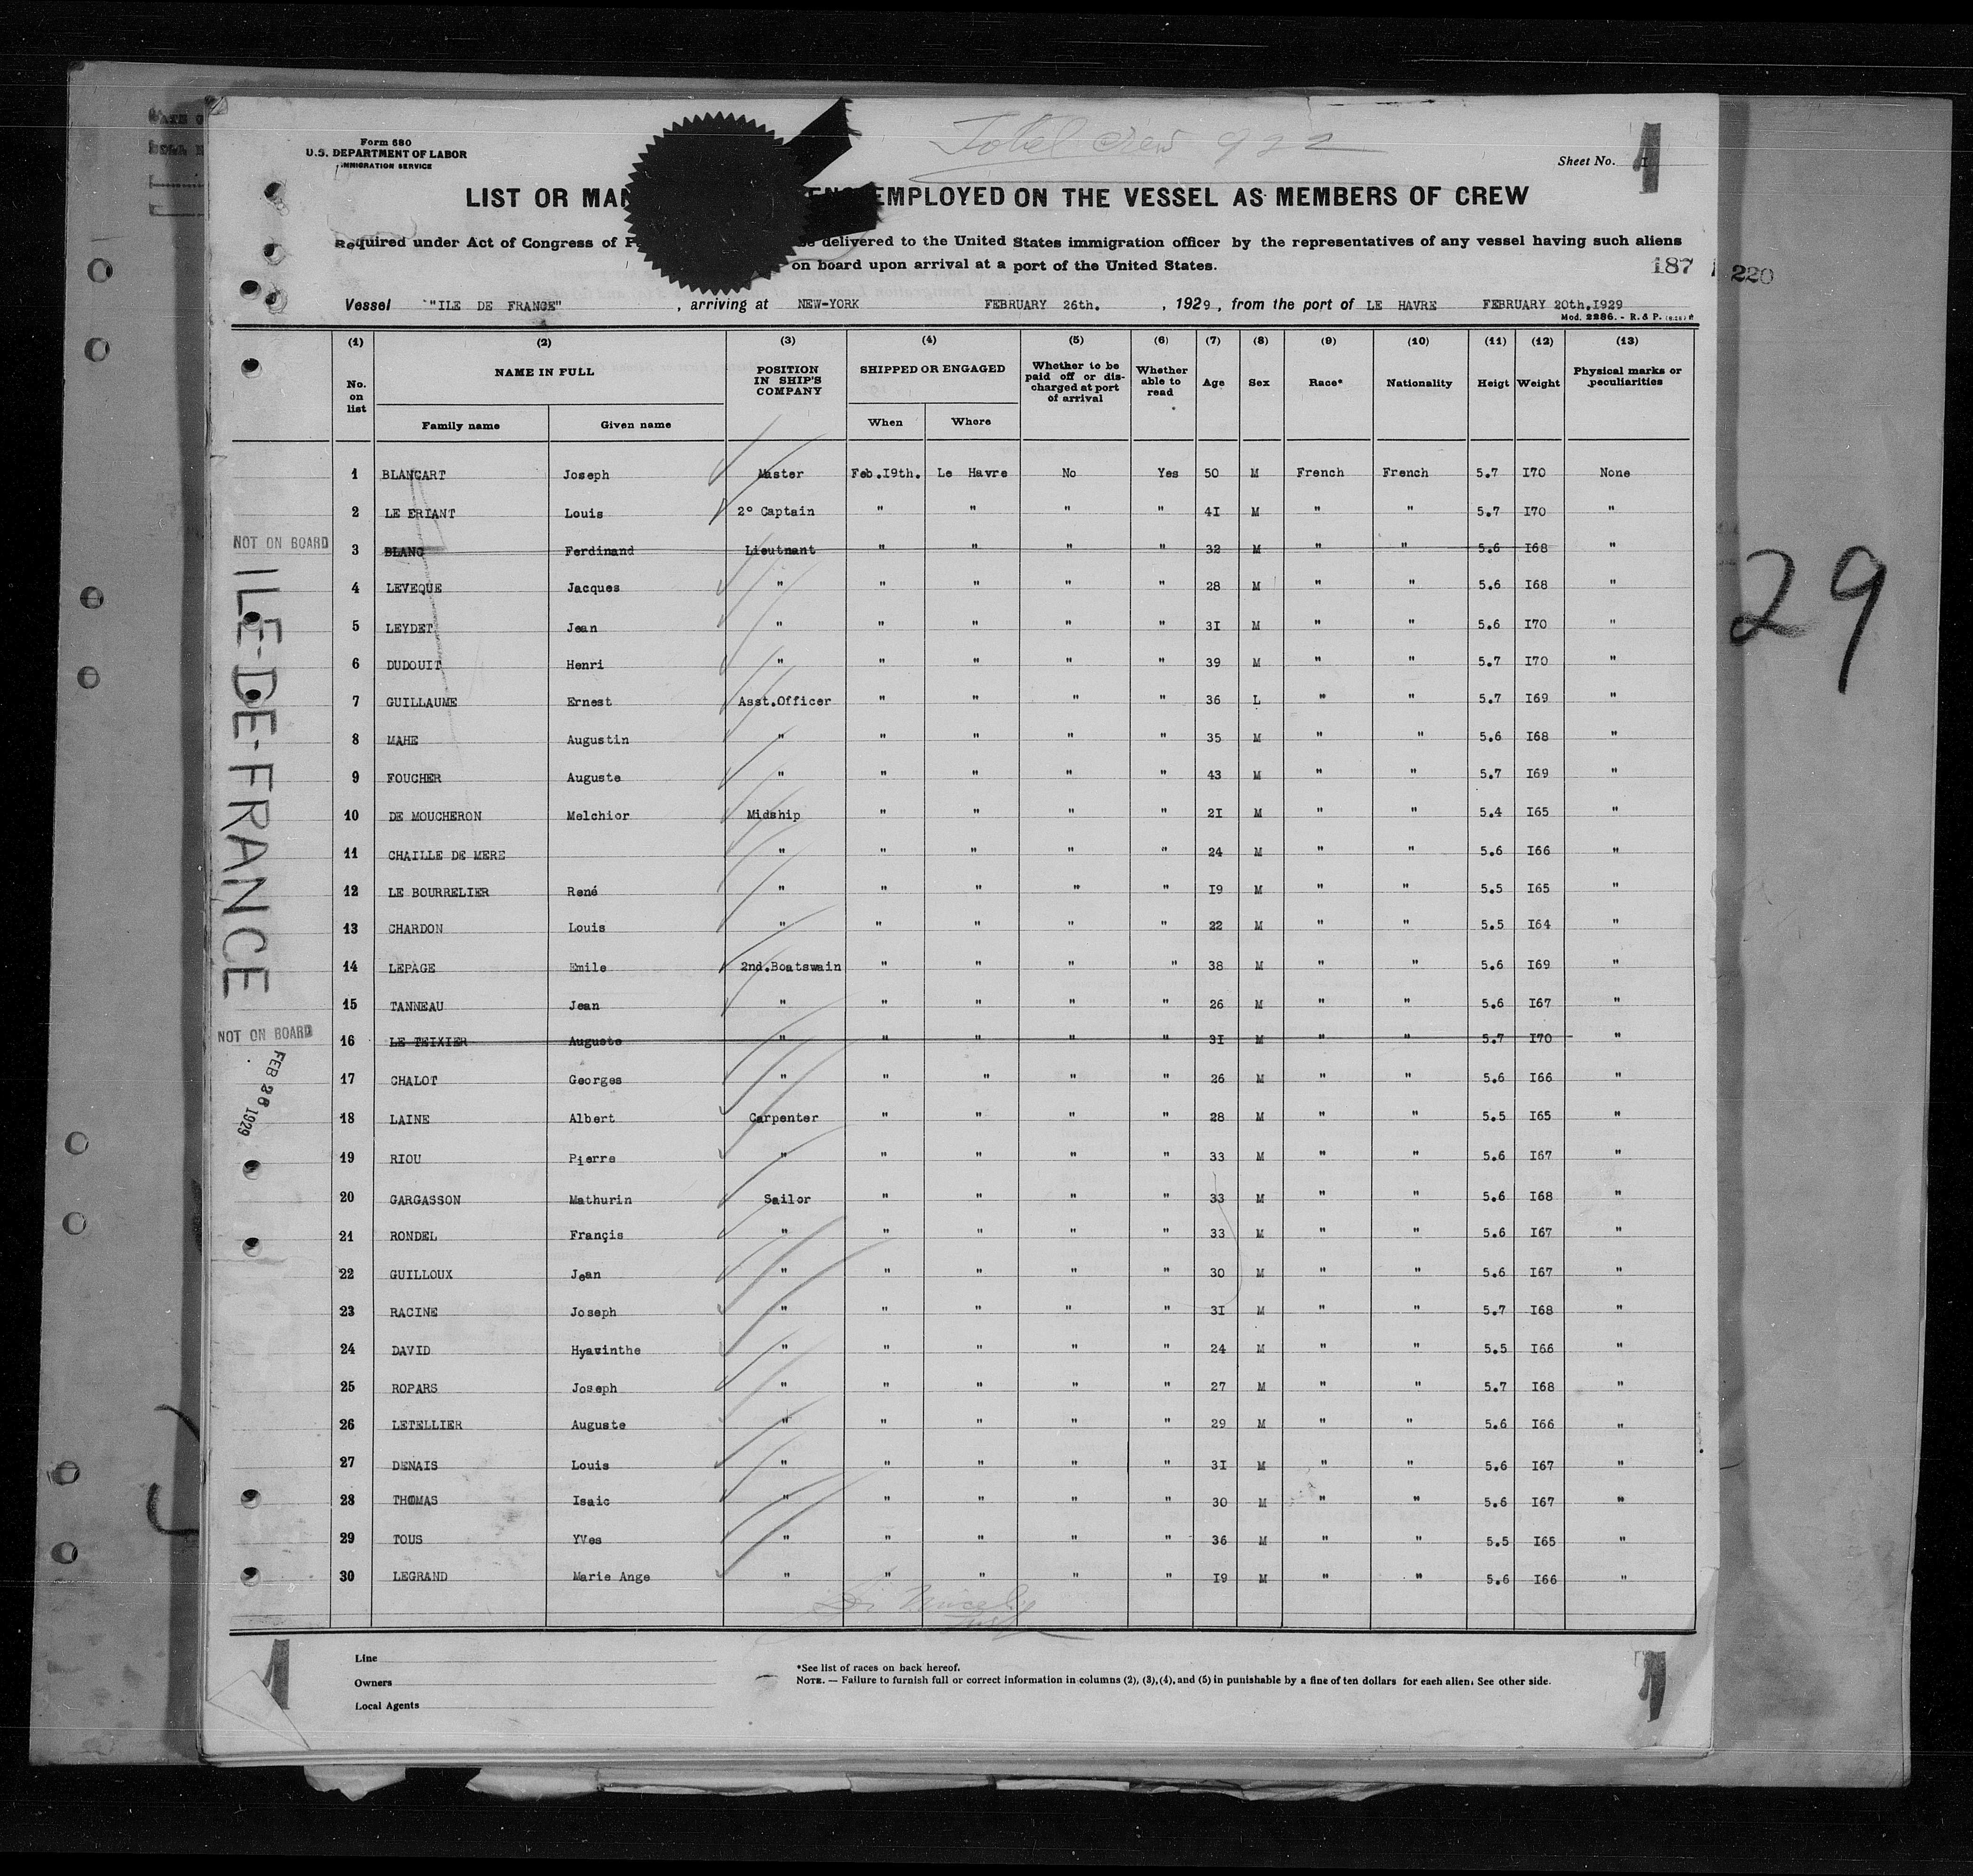 Form 680
U.S. DEPARTMENT OF LABOR
IMMIGRATION SERVICE
Total crew 922
Sheet No. I
LIST OR MAN EMPLOYED ON THE VESSEL AS MEMBERS OF CREW
Required under Act of Congress of be delivered to the United States immigration officer by the representatives of any vessel having such aliens
on board upon arrival at a port of the United States.
187 220
Vessel "ILE DE FRANCE" , arriving at NEW-YORK FEBRUARY 26th. , 1929 , from the port of LE HAVRE FEBRUARY 20th.I929
Mod. 2286. - R. & P.
(1) (2) (3) (4) (5) (6) (7) (8) (9) (10) (11) (12) (13)
No. on list NAME IN FULL POSITION IN SHIP'S COMPANY SHIPPED OR ENGAGED Whether to be paid off or discharged at port of arrival Whether able to read Age Sex Race* Nationality Heigt Weight Physical marks or peculiarities
Family name Given name When Where
1 BLANCART Joseph Master Feb.I9th. Le Havre No Yes 50 M French French 5.7 I70 None
2 LE ERIANT Louis 2° Captain " " " " 4I M " " 5.7 I70 "
NOT ON BOARD 3 BLANC Ferdinand Lieutnant " " " " 32 M " " 5.6 I68 "
4 LEVEQUE Jacques " " " " " 28 M " " 5.6 I68 "
5 LEYDET Jean " " " " " 3I M " " 5.6 I70 "
6 DUDOUIT Henri " " " " " 39 M " " 5.7 I70 "
7 GUILLAUME Ernest Asst.Officer " " " " 36 L " " 5.7 I69 "
8 MAHE Augustin " " " " " 35 M " " 5.6 I68 "
9 FOUCHER Auguste " " " " " 43 M " " 5.7 I69 "
10 DE MOUCHERON Melchior Midship " " " " 2I M " " 5.4 I65 "
11 CHAILLE DE MERE " " " " " 24 M " " 5.6 I66 "
12 LE BOURRELIER René " " " " " I9 M " " 5.5 I65 "
13 CHARDON Louis " " " " " 22 M " " 5.5 I64 "
14 LEPAGE Emile 2nd.Boatswain " " " " 38 M " " 5.6 I69 "
15 TANNEAU Jean " " " " " 26 M " " 5.6 I67 "
NOT ON BOARD 16 LE TEIXIER Auguste " " " " " 3I M " " 5.7 I70 "
17 CHALOT Georges " " " " " 26 M " " 5.6 I66 "
18 LAINE Albert Carpenter " " " " 28 M " " 5.5 I65 "
19 RIOU Pierre " " " " " 33 M " " 5.6 I67 "
20 GARGASSON Mathurin Sailor " " " " 33 M " " 5.6 I68 "
21 RONDEL Françis " " " " " 33 M " " 5.6 I67 "
22 GUILLOUX Jean " " " " " 30 M " " 5.6 I67 "
23 RACINE Joseph " " " " " 3I M " " 5.7 I68 "
24 DAVID Hyavinthe " " " " " 24 M " " 5.5 I66 "
25 ROPARS Joseph " " " " " 27 M " " 5.7 I68 "
26 LETELLIER Auguste " " " " " 29 M " " 5.6 I66 "
27 DENAIS Louis " " " " " 3I M " " 5.6 I67 "
28 THOMAS Isaic " " " " " 30 M " " 5.6 I67 "
29 TOUS YVes " " " " " 36 M " " 5.5 I65 "
30 LEGRAND Marie Ange " " " " " I9 M " " 5.6 I66 "
ILE-DE-FRANCE
FEB 26 1929
29
Line
Owners
Local Agents
*See list of races on back hereof.
NOTE. — Failure to furnish full or correct information in columns (2), (3), (4), and (5) in punishable by a fine of ten dollars for each alien. See other side.
1
1
1